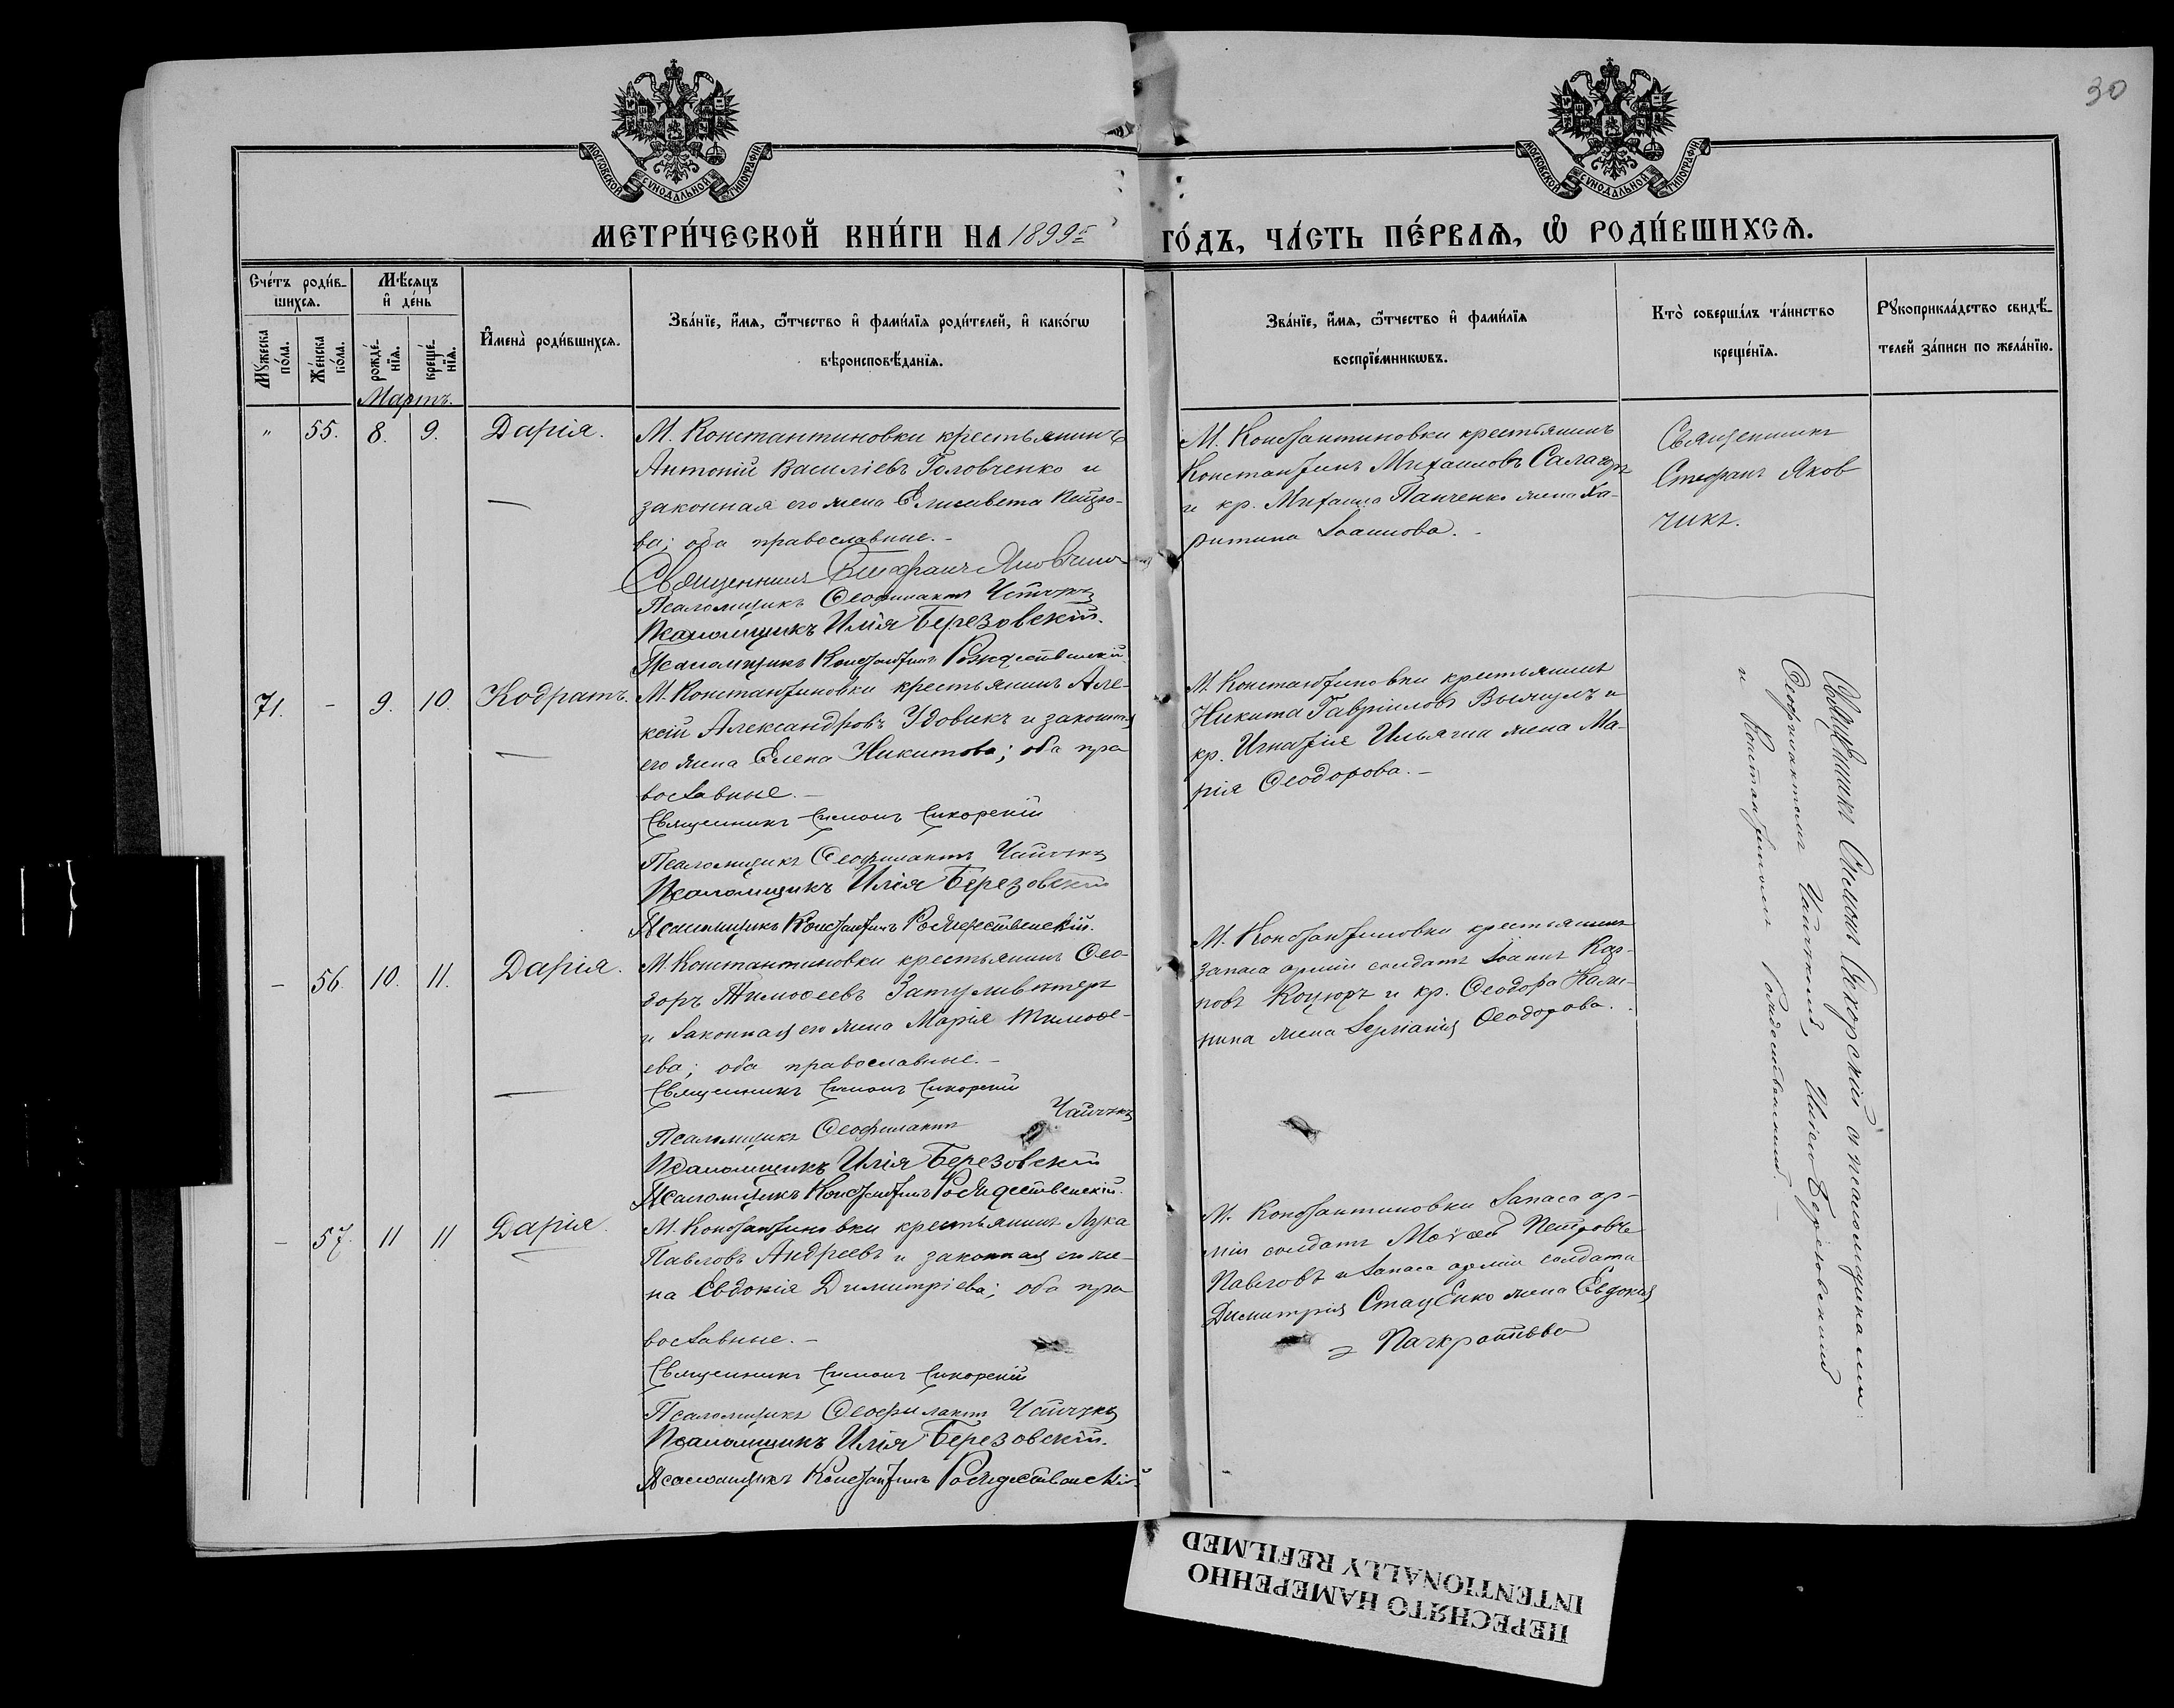 30
МОСКОВСКОЙ СУНОДАЛЬНОЙ ТИПОГРАФІИ
МОСКОВСКОЙ СУНОДАЛЬНОЙ ТИПОГРАФІИ
МЕТРИ́ЧЕСКОЙ КНИ́ГИ НА 1899й ГО́ДЪ, ЧА́СТЬ ПЕ́РВАѦ, Ѡ РОДИ́ВШИХСѦ.
Сче́тъ роди́в-
шихсѧ.
Мꙋ́жеска по́ла.
Же́нска по́ла.
Мѣ́сѧцъ
и҆ де́нь
рожде́-нїѧ.
креще́-нїѧ.
И҆мена̀ роди́вшихсѧ.
Зва́нїе, и҆́мѧ, ѻ҆́тчество и҆ фами́лїѧ роди́телей, и҆ како́гѡ
вѣроисповѣ́данїѧ.
Зва́нїе, и҆́мѧ, ѻ҆́тчество и҆ фами́лїѧ
воспрїе́мникѡвъ.
Кто̀ соверша́лъ та́инство
креще́нїѧ.
Рꙋкоприкла́дство свидѣ́-
телей за́писи по жела́нїю.
Мартъ.
" 55. 8. 9. Дарія.
М. Константиновки крестьянинъ
Антоній Василіевъ Головченко и
законная его жена Елисавета
ва; оба православные.-
Священникъ Стефанъ Яковчикъ
Псаломщикъ Ѳеофилактъ Чайчукъ
Псаломщикъ Илія Березовскій.
Псаломщикъ Константинъ Рождественскій
М. Константиновки крестьянинъ
Константинъ Михаиловъ
и кр. Михаила Панченко жена Ха-
ритина Іоаннова.-
Священникъ
Стефанъ Яков
чикъ.
71. - 9. 10. Кодратъ.
М. Константиновки крестьянинъ Але-
ксій Александровъ Удовикъ и законная
его жена Елена Никитова; оба пра
вославные.-
Священникъ Симонъ Сикорскій
Псаломщикъ Ѳеофилактъ Чайчукъ
Псаломщикъ Илія Березовскій
Псаломщикъ Константинъ Рождественскій.
М. Константиновки крестьянинъ
Никита Гавріиловъ и
кр. Игнатія жена Ма-
рія Ѳеодорова.-
- 56. 10. 11. Дарія.
М. Константиновки крестьянинъ Ѳео-
доръ Тимоѳеевъ
и законная его жена Марія Тимоѳе-
ева; оба православные.-
Священникъ Симонъ Сикорскій
Псаломщикъ Ѳеофилактъ Чайчукъ
Псаломщикъ Илія Березовскій
Псаломщикъ Константинъ Рождественскій.
М. Константиновки крестьянинъ
запаса арміи солдатъ Іоаннъ Кар-
повъ Коцюръ и кр. Ѳеодора Кали-
нина жена Ѳеодорова.
- 57. 11 11 Дарія
М. Константиновки крестьянинъ Лука
Павловъ Андреевъ и законная его же-
на Евдокія Димитріева; оба пра
вославные.-
Священникъ Симонъ Сикорскій
Псаломщикъ Ѳеофилактъ Чайчукъ
Псаломщикъ Илія Березовскій.
Псаломщикъ Константинъ Рождественскій
М. Константиновки запаса ар-
міи солдатъ Моѵсей Петровъ
Павловъ и запаса арміи солдата
Димитрія Стаценко жена Евдокія
Панкратьева
Священникъ Симонъ Сикорскій съ псаломщиками:
Ѳеофилактомъ Чайчукомъ, Иліею Березовскимъ
и Константиномъ Рождественскимъ.-
ПЕРЕСНЯТО НАМЕРЕННО
INTENTIONALLY REFILMED